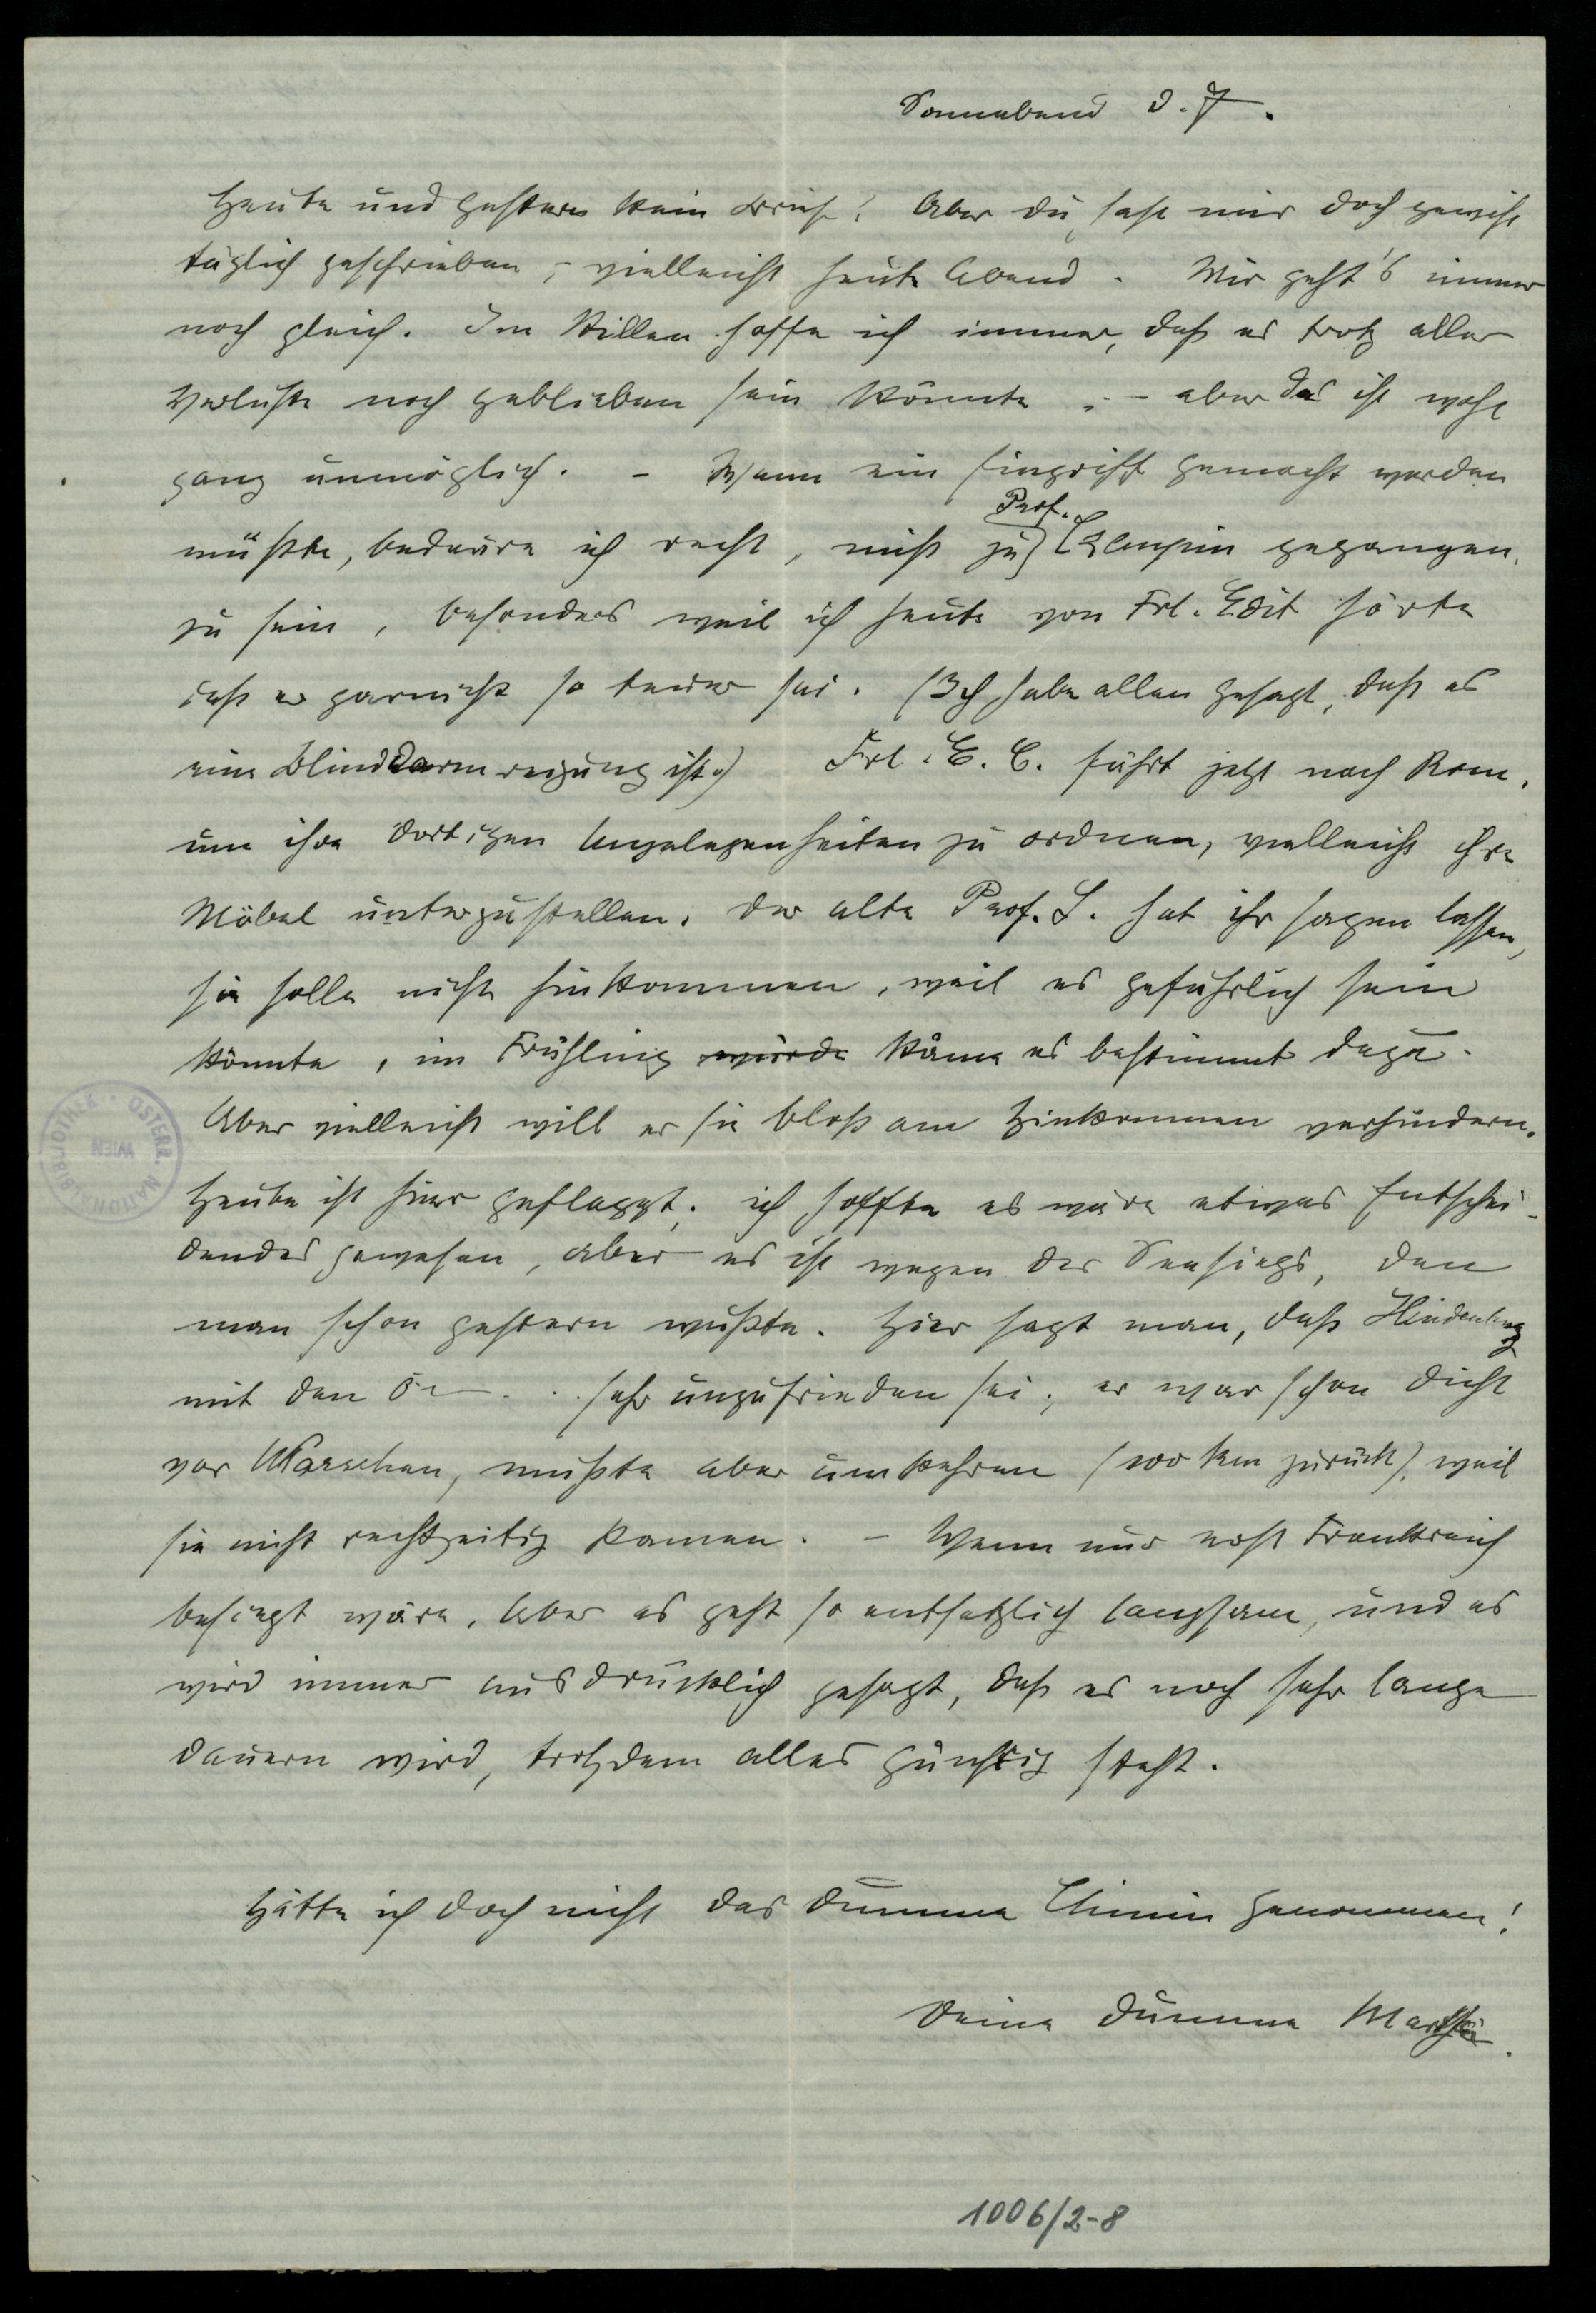 Sonnabend d. 7.
Heute und gestern kein Brief! Aber du hast mir doch gewiß
täglich geschrieben, – vielleicht heute Abend. Mir geht's immer
noch gleich. Im Stillen hoffe ich immer, daß es trotz aller
Verluste noch geblieben sein könnte, – aber das ist wohl
ganz unmöglich. – Wenn ein Eingriff gemacht werden
müßte, bedaure ich recht, nicht zu Prof. gegangen
zu sein, besonders weil ich heute von Frl. Edit hörte
daß er garnicht so teuer sei. (Ich habe allen gesagt, daß es
eine Blinddarmreizung ist.) Frl. E. C. fährt jetzt nach Rom,
um ihre dortigen Angelegenheiten zu ordnen, vielleicht ihre
Möbel unterzustellen. Der alte Prof. L. hat ihr sagen lassen,
sie solle nicht hinkommen, weil es gefährlich sein
könnte, im Frühling würde käme es bestimmt dazu.
Aber vielleicht will er sie bloß am Hinkommen verhindern.
Heute ist hier geflaggt; ich hoffte es wäre etwas Entschei-
dendes gewesen, aber es ist wegen des Seesiegs, den
man schon gestern wußte. Hier sagt man, daß Hindenburg
mit den Ö . . . sehr unzufrieden sei; er war schon dicht
vor Warschau, mußte aber umkehren (100 km zurück), weil
sie nicht rechtzeitig kamen. – Wenn nur erst Frankreich
besiegt wäre. Aber es geht so entsetzlich langsam, und es
wird immer ausdrücklich gesagt, daß es noch sehr lange
dauern wird, trotzdem alles günstig steht.
Hätte ich doch nicht das dumme Chinin genommen!
Deine dumme Martha.
1006/2-8
ÖSTERR. NATIONALBIBLIOTHEK · WIEN